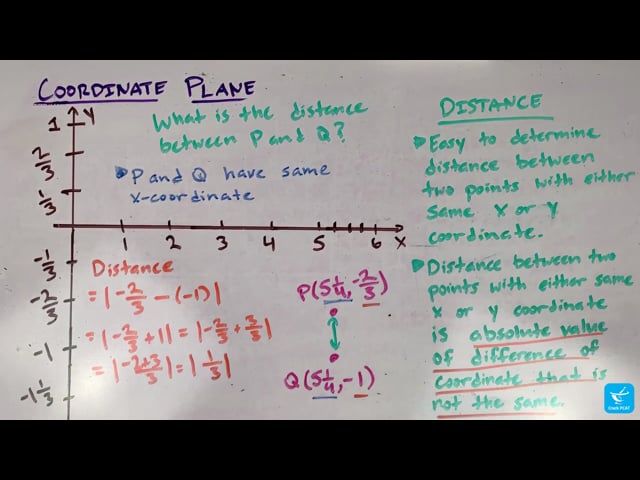 COORDINATE PLANE
Y
1
2/3
1/3
-1/3
-2/3
-1
-1 1/3
1 2 3 4 5 6 X
What is the distance
between P and Q?
P and Q have same
x-coordinate
Distance
= |-2/3 - (-1)|
= |-2/3 + 1| = |-2/3 + 3/3|
= |-2+3/3| = |1/3|
P(5 1/4, -2/3)
Q(5 1/4, -1)
DISTANCE
Easy to determine
distance between
two points with either
same X or Y
coordinate.
Distance between two
points with either same
x or y coordinate
is absolute value
of difference of
coordinate that is
not the same.
Crash PCAT